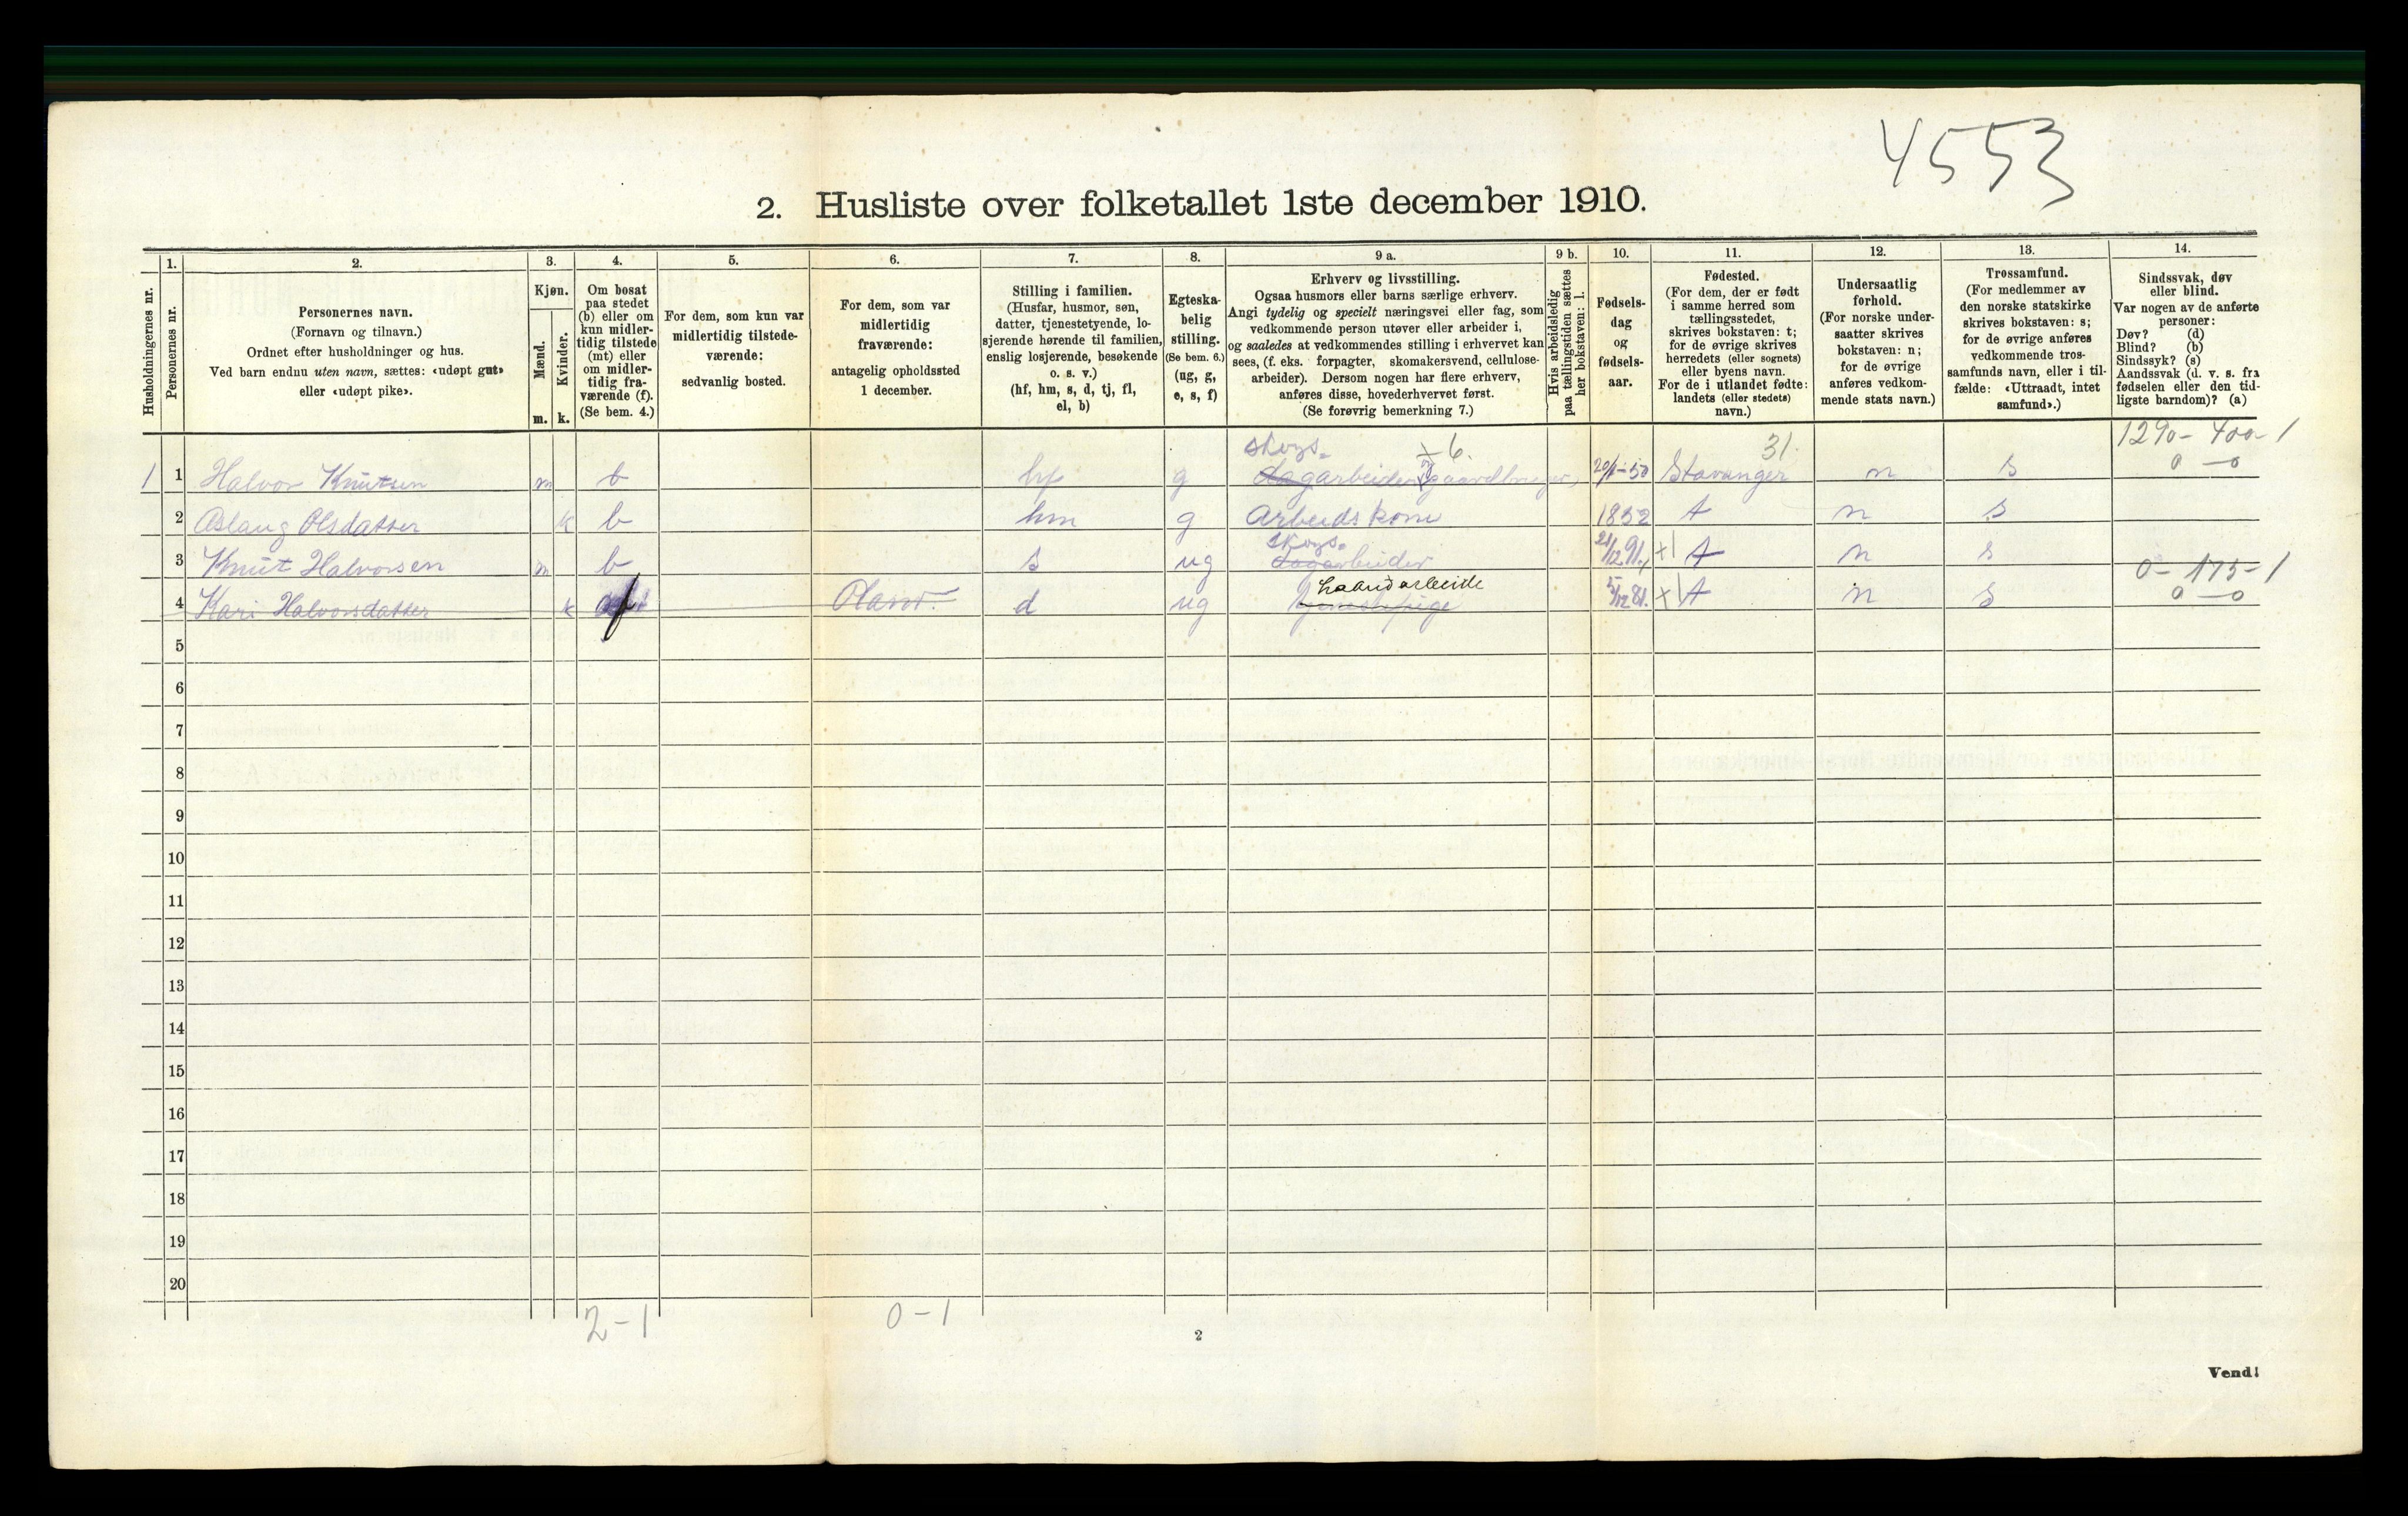 4553
2. Husliste over folketallet 1ste december 1910.
Husholdningernes nr.
1.
Personernes nr.
2.
Personernes navn.
(Fornavn og tilnavn.)
Ordnet efter husholdninger og hus.
Ved barn endnu uten navn, sættes: «udøpt gut»
eller «udøpt pike».
3.
Kjøn.
Mænd.
Kvinder.
m. k.
4.
Om bosat
paa stedet
(b) eller om
kun midler-
tidig tilstede
(mt) eller
om midler-
tidig fra-
værende (f).
(Se bem. 4.)
5.
For dem, som kun var
midlertidig tilstede-
værende:
sedvanlig bosted.
6.
For dem, som var
midlertidig
fraværende:
antagelig opholdssted
1 december.
7.
Stilling i familien.
(Husfar, husmor, søn,
datter, tjenestetyende, lo-
sjerende hørende til familien,
enslig losjerende, besøkende
o. s. v.)
(hf, hm, s, d, tj, fl,
el, b)
8.
Egteska-
belig
stilling.
(Se bem. 6.)
(ug, g,
e, s, f)
9 a.
Erhverv og livsstilling.
Ogsaa husmors eller barns særlige erhverv.
Angi tydelig og specielt næringsvei eller fag, som
vedkommende person utøver eller arbeider i,
og saaledes at vedkommendes stilling i erhvervet kan
sees, (f. eks. forpagter, skomakersvend, cellulose-
arbeider). Dersom nogen har flere erhverv,
anføres disse, hovederhvervet først.
(Se forøvrig bemerkning 7.)
9 b.
Hvis arbeidsledig
paa tællingstiden sættes
her bokstaven: l.
10.
Fødsels-
dag
og
fødsels-
aar.
11.
Fødested.
(For dem, der er født
i samme herred som
tællingsstedet,
skrives bokstaven: t;
for de øvrige skrives
herredets (eller sognets)
eller byens navn.
For de i utlandet fødte:
landets (eller stedets)
navn.)
12.
Undersaatlig
forhold.
(For norske under-
saatter skrives
bokstaven: n;
for de øvrige
anføres vedkom-
mende stats navn.)
13.
Trossamfund.
(For medlemmer av
den norske statskirke
skrives bokstaven: s;
for de øvrige anføres
vedkommende tros-
samfunds navn, eller i til-
fælde: «Uttraadt, intet
samfund».)
14.
Sindssvak, døv
eller blind.
Var nogen av de anførte
personer:
Døv? (d)
Blind? (b)
Sindssyk? (s)
Aandssvak (d. v. s. fra
fødselen eller den tid-
ligste barndom)? (a)
skogs. 6. 31. 1290 - 400 - 1
1 1 Halvor Knutsen m b hf g arbeider gaardbruger, Stavanger n s 0 - 0
2 Aslaug Olsdatter k b hm g Arbeidskone 1852 t n s
skogs.
3 Knut Halvorsen m b s ug arbeider 21/12 91 +1 t n s
Haandarbeide 0 - 175 - 1
4 Kari Halvorsdatter k f d ug 5/12 81. +1 t n s 0 - 0
5
6
7
8
9
10
11
12
13
14
15
16
17
18
19
20
2 - 1 0 - 1
2
Vend!